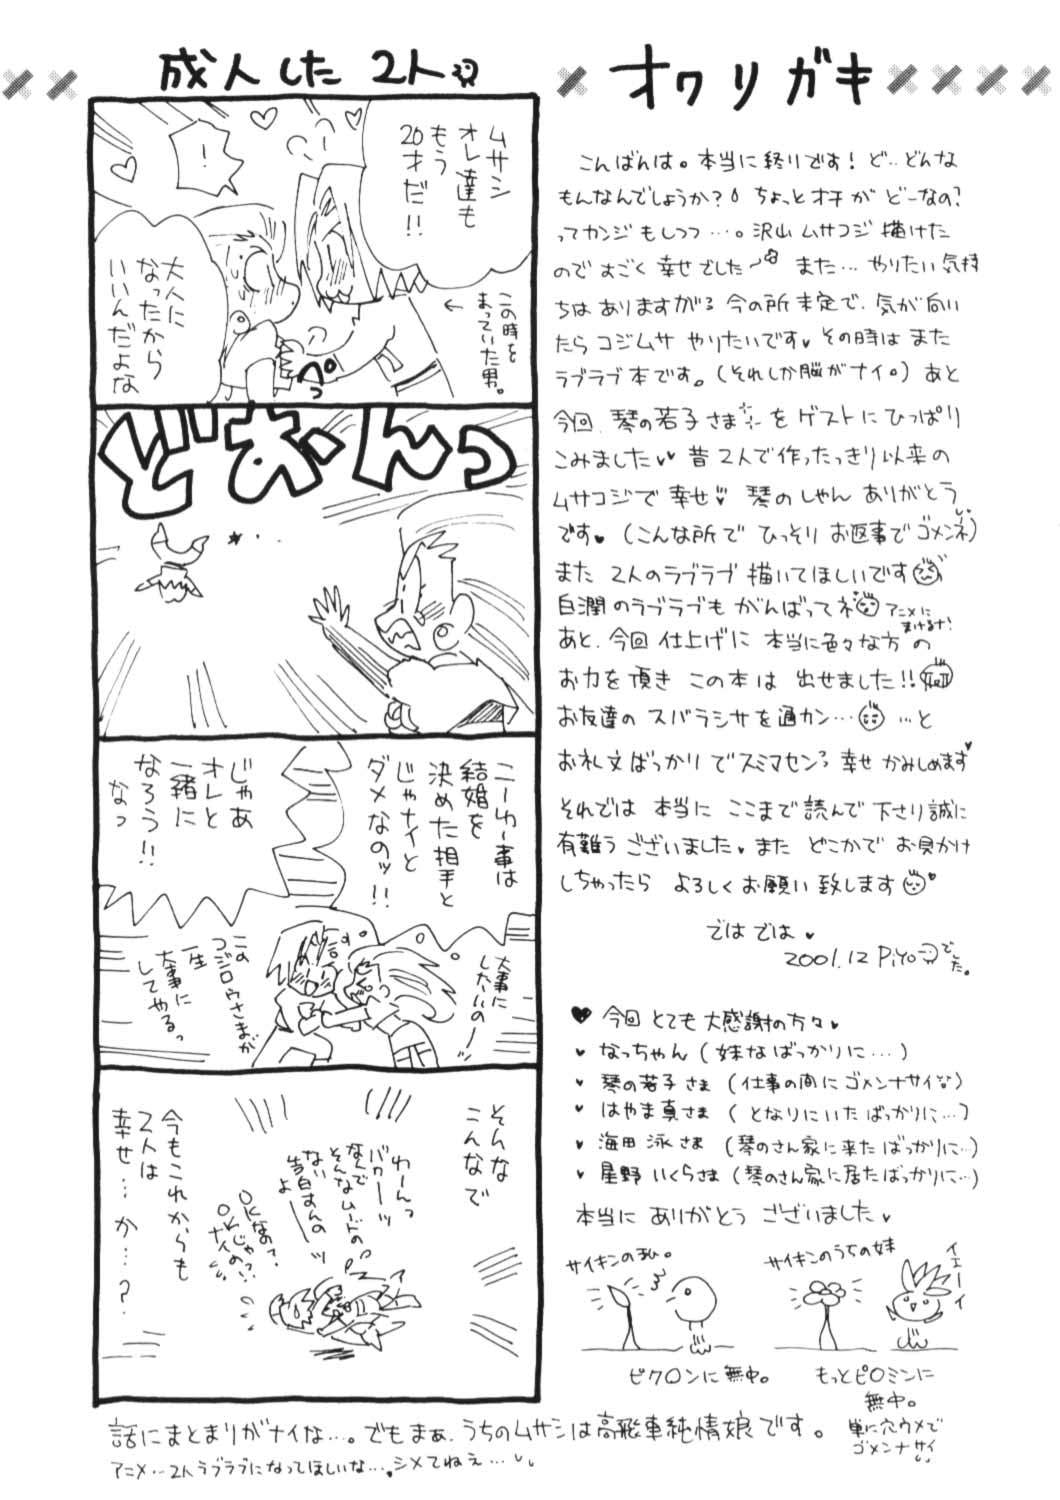 成人した2人
ムサシ
オレ達も
もう
20才だ!!
!
この時を
まっていた男。
大人に
なったから
いいんだよな
ペっ
どおーんっ
こーゆー事は
結婚を
決めた相手と
じゃナイと
ダメなのッ!!
じゃあ
オレと
一緒に
なろう!!
なっ
大事に
したいのー
この
コジロウさまが
一生
大事に
してやるっ
そんな
こんなで
わーんっ
バカーーッ
なんで
そんなムードの
ない告白すんの
よーーッ
OKなの?
OKじゃ
ナイの!?
今もこれからも
2人は
幸せ…か…?
話にまとまりがナイな…。でもまぁ、うちのムサシは高飛車純情娘です。
アニメ…2人ラブラブになってほしいな…。シメてねえ…
オワリガキ
こんばんは。本当に終りです! ど…どんな
もんなんでしょうか? ちょっとオチが どーなの?
ってカンジもしつつ…。沢山ムサコジ描けた
のですごく幸せでした〜 また…やりたい気持
ちはありますがる 今の所未定で、気が向い
たらコジムサやりたいです♥ その時はまた
ラブラブ本です。(それしか脳がナイ。) あと
今回、琴の若子さまをゲストにひっぱり
こみました♥♥ 昔2人で作ったっきり以来の
ムサコジで幸せ♥ 琴のしゃんありがとう
です♥ (こんな所でひっそりお返事でゴメンネ)
また 2人のラブラブ描いてほしいです
白潤のラブラブもがんばってネ アニメに
まけるな!
あと、今回仕上げに本当に色々な方の
お力を頂きこの本は出せました!!
お友達のスバラシサを通カン… …と
お礼文ばっかりでスミマセンっ 幸せかみしめます♥
それでは本当にここまで読んで下さり誠に
有難うございました。また どこかでお見かけ
しちゃったら よろしくお願い致します♥
ではでは♥
2001.12 Piyoでした。
♥ 今回とても大感謝の方々♥
♥ なっちゃん (妹なばっかりに…)
♥ 琴の若子さま (仕事の間にゴメンナサイ)
♥ はやま真さま (となりにいたばっかりに…)
♥ 海田泳さま (琴のさん家に来たばっかりに…)
♥ 星野いくらさま (琴のさん家に居たばっかりに…)
本当にありがとうございました♥
サイキンの私。
ピク○ンに無中。
サイキンのうちの妹
イエーイ
もっとピ○ミンに
無中。
単に穴ウメで
ゴメンナサイ